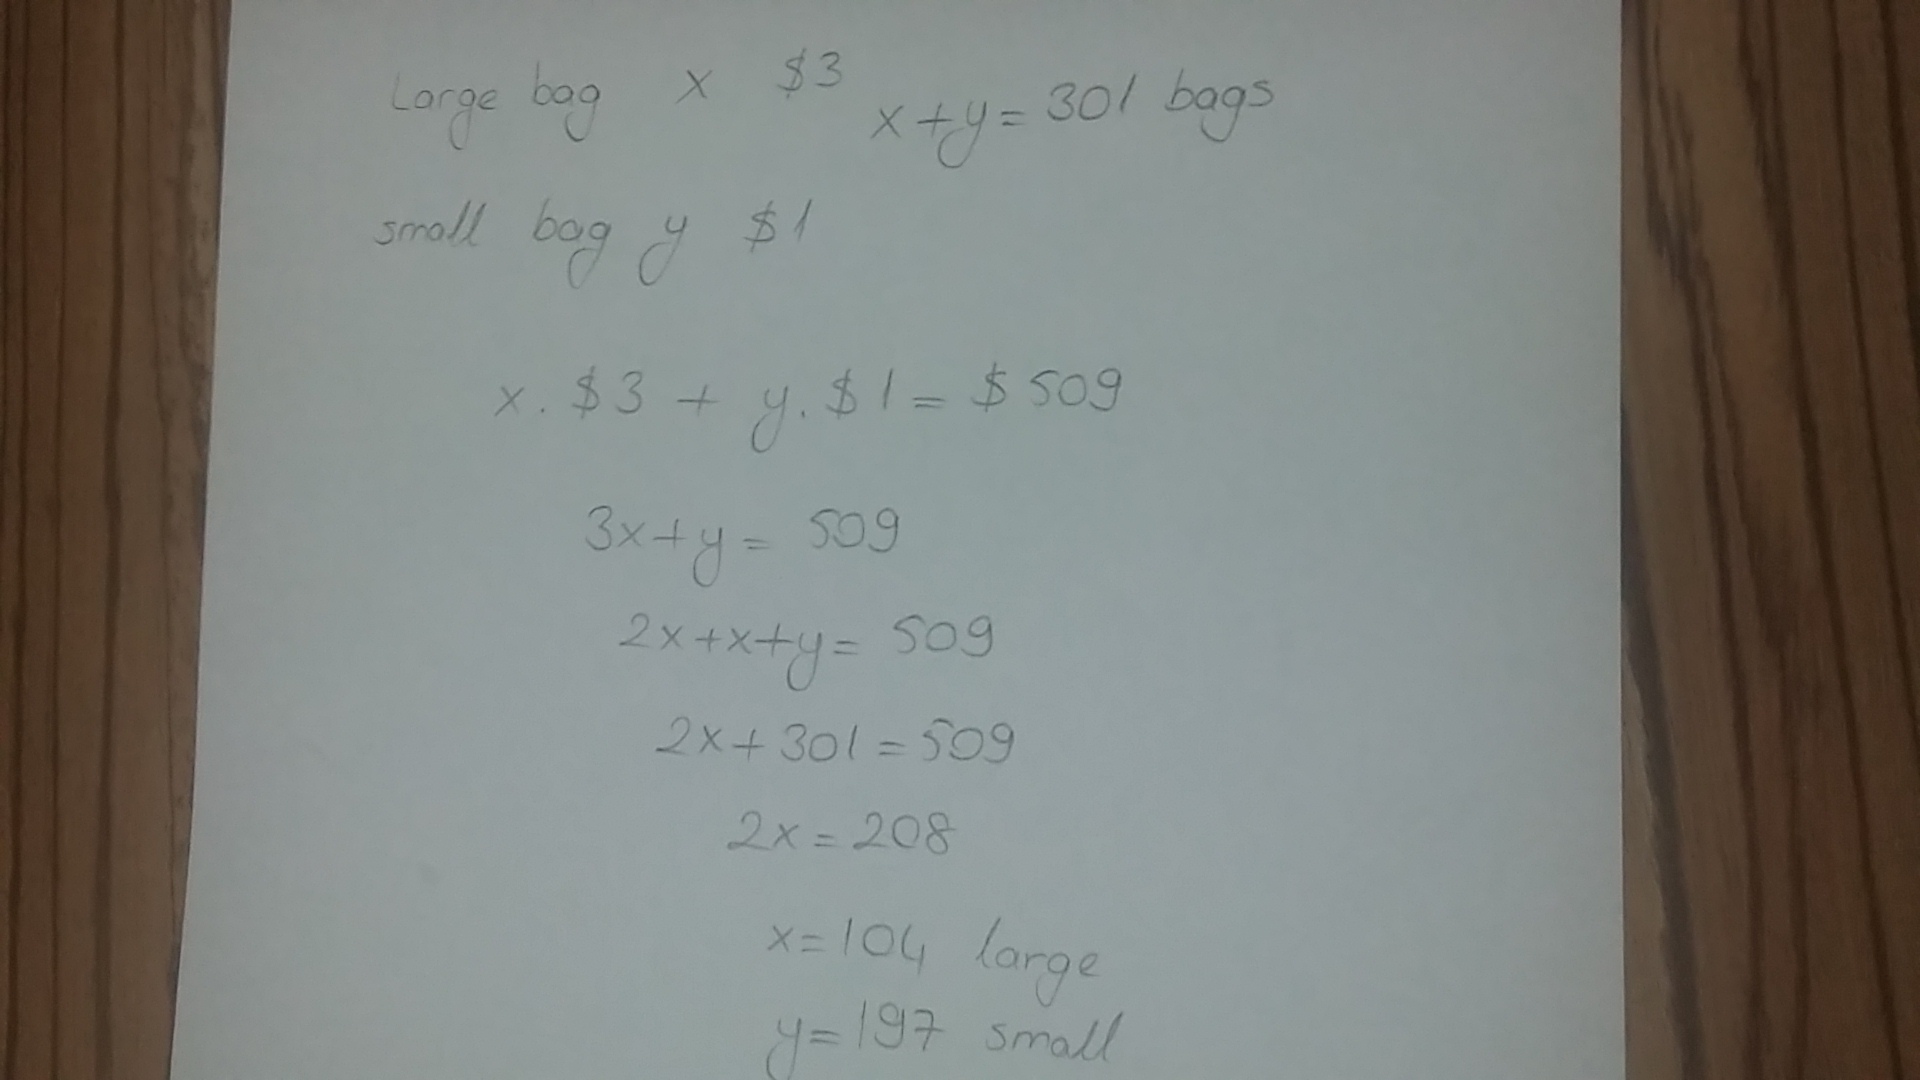 Large bag x $3 x+y=301 bags
small bag y $1
x. $3 + y. $1= $509
3x+y= 509
2x+x+y= 509
2x+301=509
2x=208
x=104 large
y=197 small